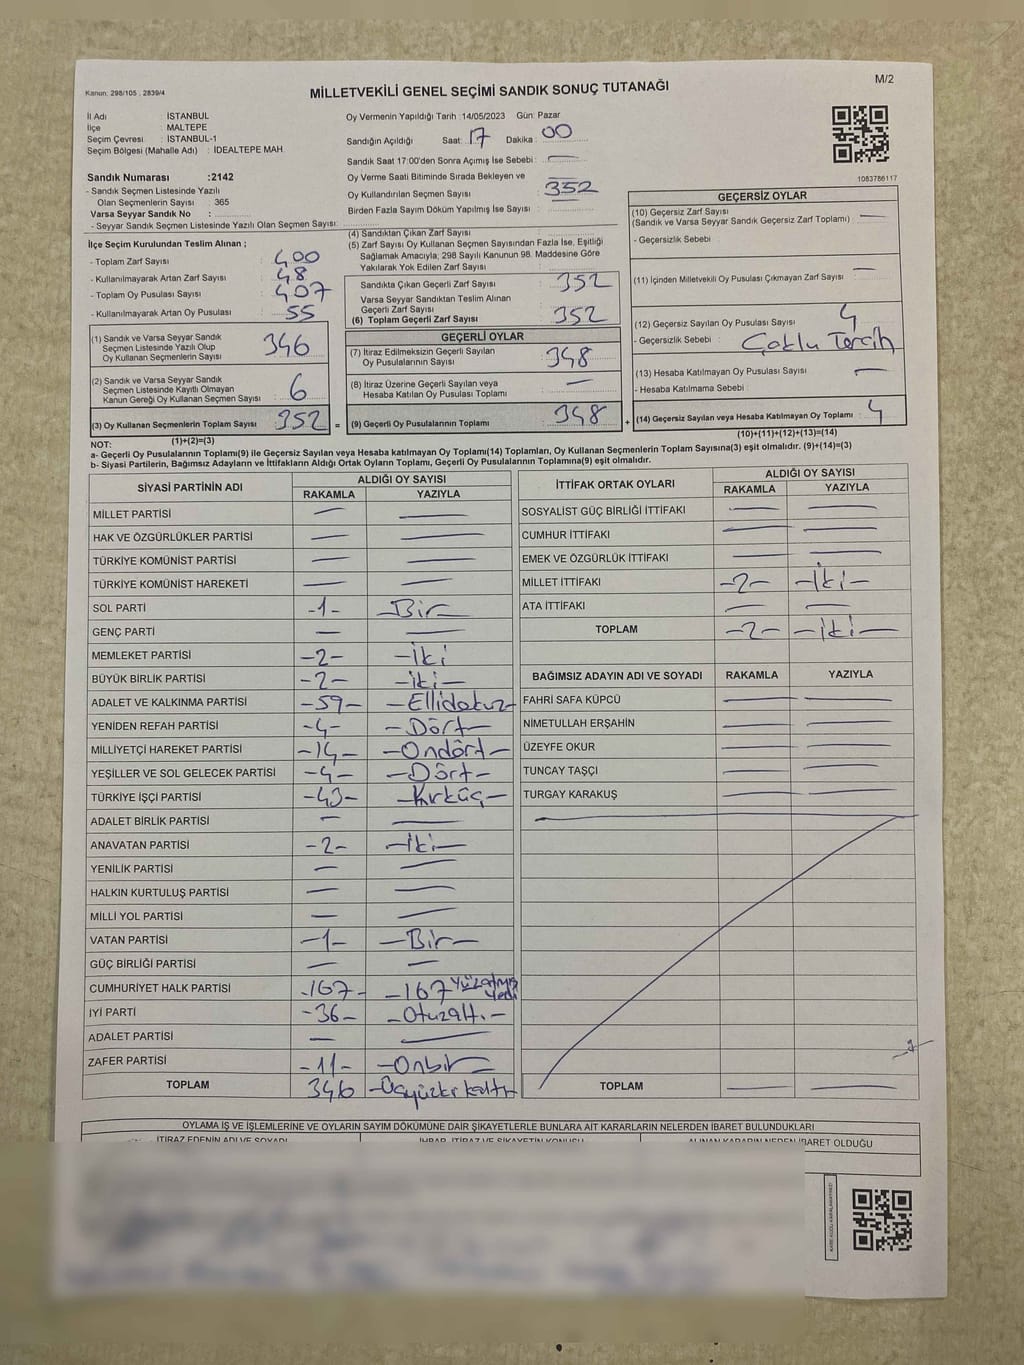 Kanun: 298/105 : 2839/4
MİLLETVEKİLİ GENEL SEÇİMİ SANDIK SONUÇ TUTANAĞI
M/2
İl Adı : İSTANBUL
İlçe : MALTEPE
Seçim Çevresi : İSTANBUL-1
Seçim Bölgesi (Mahalle Adı) : İDEALTEPE MAH.
Oy Vermenin Yapıldığı Tarih :14/05/2023 Gün: Pazar
Sandığın Açıldığı Saat: 17 Dakika : 00
Sandık Saat 17:00'den Sonra Açımış İse Sebebi : —
Oy Verme Saati Bitiminde Sırada Bekleyen ve
Oy Kullandırılan Seçmen Sayısı : 352
Birden Fazla Sayım Döküm Yapılmış İse Sayısı :
1083786117
Sandık Numarası :2142
- Sandık Seçmen Listesinde Yazılı
Olan Seçmenlerin Sayısı : 365
Varsa Seyyar Sandık No :
- Seyyar Sandık Seçmen Listesinde Yazılı Olan Seçmen Sayısı:
İlçe Seçim Kurulundan Teslim Alınan ;
- Toplam Zarf Sayısı : 400
- Kullanılmayarak Artan Zarf Sayısı : 48
- Toplam Oy Pusulası Sayısı : 407
- Kullanılmayarak Artan Oy Pusulası : 55
(1) Sandık ve Varsa Seyyar Sandık
Seçmen Listesinde Yazılı Olup
Oy Kullanan Seçmenlerin Sayısı 346
(2) Sandık ve Varsa Seyyar Sandık
Seçmen Listesinde Kayıtlı Olmayan
Kanun Gereği Oy Kullanan Seçmen Sayısı : 6
(3) Oy Kullanan Seçmenlerin Toplam Sayısı 352 =
(1)+(2)=(3)
(4) Sandıktan Çıkan Zarf Sayısı :
(5) Zarf Sayısı Oy Kullanan Seçmen Sayısından Fazla İse, Eşitliği
Sağlamak Amacıyla, 298 Sayılı Kanunun 98. Maddesine Göre
Yakılarak Yok Edilen Zarf Sayısı :
Sandıkta Çıkan Geçerli Zarf Sayısı : 352
Varsa Seyyar Sandıktan Teslim Alınan
Geçerli Zarf Sayısı :
(6) Toplam Geçerli Zarf Sayısı : 352
GEÇERLİ OYLAR
(7) İtiraz Edilmeksizin Geçerli Sayılan
Oy Pusulalarının Sayısı : 348
(8) İtiraz Üzerine Geçerli Sayılan veya
Hesaba Katılan Oy Pusulası Toplamı : —
(9) Geçerli Oy Pusulalarının Toplamı : 348 +
GEÇERSİZ OYLAR
(10) Geçersiz Zarf Sayısı
(Sandık ve Varsa Seyyar Sandık Geçersiz Zarf Toplamı) : —
- Geçersizlik Sebebi :
(11) İçinden Milletvekili Oy Pusulası Çıkmayan Zarf Sayısı : —
(12) Geçersiz Sayılan Oy Pusulası Sayısı : 4
- Geçersizlik Sebebi : Çoklu Tercih
(13) Hesaba Katılmayan Oy Pusulası Sayısı : —
- Hesaba Katılmama Sebebi :
(14) Geçersiz Sayılan veya Hesaba Katılmayan Oy Toplamı : 4
(10)+(11)+(12)+(13)=(14)
NOT:
a- Geçerli Oy Pusulalarının Toplamı(9) ile Geçersiz Sayılan veya Hesaba katılmayan Oy Toplamı(14) Toplamları, Oy Kullanan Seçmenlerin Toplam Sayısına(3) eşit olmalıdır. (9)+(14)=(3)
b- Siyasi Partilerin, Bağımsız Adayların ve İttifakların Aldığı Ortak Oyların Toplamı, Geçerli Oy Pusulalarının Toplamına(9) eşit olmalıdır.
SİYASİ PARTİNİN ADI ALDIĞI OY SAYISI
RAKAMLA YAZIYLA
MİLLET PARTİSİ — —
HAK VE ÖZGÜRLÜKLER PARTİSİ — —
TÜRKİYE KOMÜNİST PARTİSİ — —
TÜRKİYE KOMÜNİST HAREKETİ — —
SOL PARTİ -1- -Bir-
GENÇ PARTİ — —
MEMLEKET PARTİSİ -2- -İki
BÜYÜK BİRLİK PARTİSİ -2- -iki-
ADALET VE KALKINMA PARTİSİ -59- -Ellidokuz
YENİDEN REFAH PARTİSİ -4- -Dört-
MİLLİYETÇİ HAREKET PARTİSİ -14- -Ondört-
YEŞİLLER VE SOL GELECEK PARTİSİ -4- -Dört-
TÜRKİYE İŞÇİ PARTİSİ -43- -Kırküç-
ADALET BİRLİK PARTİSİ — —
ANAVATAN PARTİSİ -2- -İki-
YENİLİK PARTİSİ — —
HALKIN KURTULUŞ PARTİSİ — —
MİLLİ YOL PARTİSİ — —
VATAN PARTİSİ -1- -Bir-
GÜÇ BİRLİĞİ PARTİSİ — —
CUMHURİYET HALK PARTİSİ -167- -167 Yüzatmış Yedi
İYİ PARTİ -36- -Otuzaltı-
ADALET PARTİSİ — —
ZAFER PARTİSİ -11- -Onbir-
TOPLAM 346 -Üçyüzkırkaltı
İTTİFAK ORTAK OYLARI ALDIĞI OY SAYISI
RAKAMLA YAZIYLA
SOSYALİST GÜÇ BİRLİĞİ İTTİFAKI — —
CUMHUR İTTİFAKI — —
EMEK VE ÖZGÜRLÜK İTTİFAKI — —
MİLLET İTTİFAKI -2- -İki-
ATA İTTİFAKI — —
TOPLAM -2- -İki-
BAĞIMSIZ ADAYIN ADI VE SOYADI RAKAMLA YAZIYLA
FAHRİ SAFA KÜPCÜ — —
NİMETULLAH ERŞAHİN — —
ÜZEYFE OKUR — —
TUNCAY TAŞÇI — —
TURGAY KARAKUŞ — —
TOPLAM — —
OYLAMA İŞ VE İŞLEMLERİNE VE OYLARIN SAYIM DÖKÜMÜNE DAİR ŞİKAYETLERLE BUNLARA AİT KARARLARIN NELERDEN İBARET BULUNDUKLARI
İTİRAZ EDENİN ADI VE SOYADI İHBAR, İTİRAZ VE ŞİKAYETİN KONUSU ALINAN KARARIN NEDEN İBARET OLDUĞU